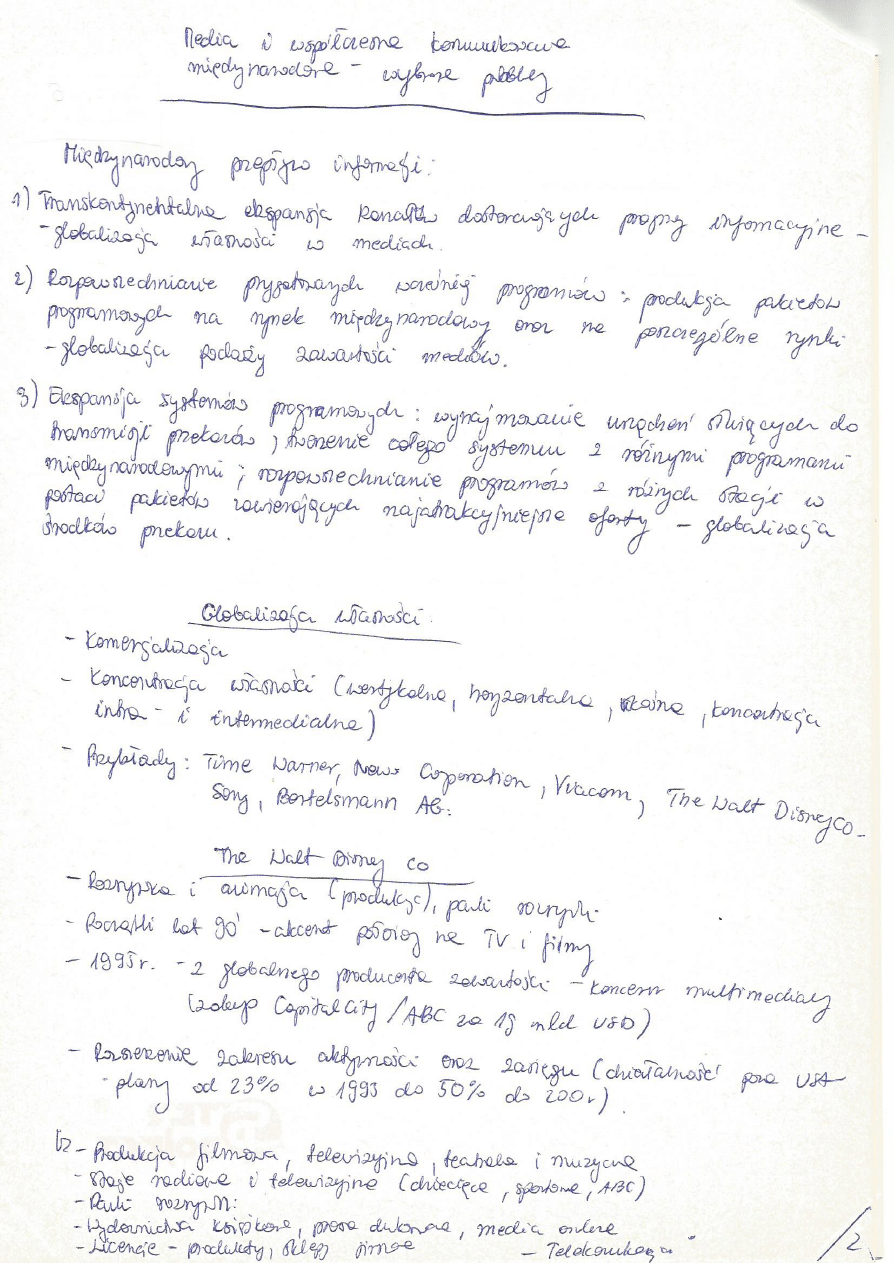 Media i współczesne komunikowanie
międzynarodowe - wybrane problemy
Międzynarodowy przepływ informacji:
1) Transkontynentalna ekspansja kanałów dostarczających programy informacyjne -
- globalizacja własności w mediach.
2) Rozpowszechnianie przygotowanych wcześniej programów: produkcja pakietów
programowych na rynek międzynarodowy oraz na poszczególne rynki
- globalizacja podaży zawartości mediów.
3) Ekspansja systemów programowych: wynajmowanie urządzeń służących do
transmisji przekazów, tworzenie całego systemu z różnymi programami
międzynarodowymi; rozpowszechnianie programów z różnych stacji w
postaci pakietów zawierających najatrakcyjniejsze oferty - globalizacja
środków przekazu.
Globalizacja własności.
- Komercjalizacja
- Koncentracja własności (wertykalna, horyzontalna, skośna, koncentracja
intra - i intermedialna)
- Przykłady: Time Warner, News Corporation, Viacom, The Walt Disney Co -
Sony, Bertelsmann AG.
The Walt Disney Co
- Rozrywka i animacja (produkcja), parki rozrywki.
- Początki lat 90' - akcent położony na TV i filmy
- 1995r. - z globalnego producenta zawartości - koncern multimedialny
(zakup Capital City / ABC za 19 mld USD)
- Rozszerzenie zakresu aktywności oraz zasięgu (działalność poza USA
- plany od 23% w 1993 do 50% do 200r.)
- Produkcja filmowa, telewizyjna, teatralna i muzyczna
- Stacje radiowe i telewizyjne (dziecięce, sportowe, ABC)
- Parki rozrywki.
- Wydawnictwa książkowe, prasa drukowana, media online
- Licencje - produkty, sklepy firmowe - Telekomunikacja
/2